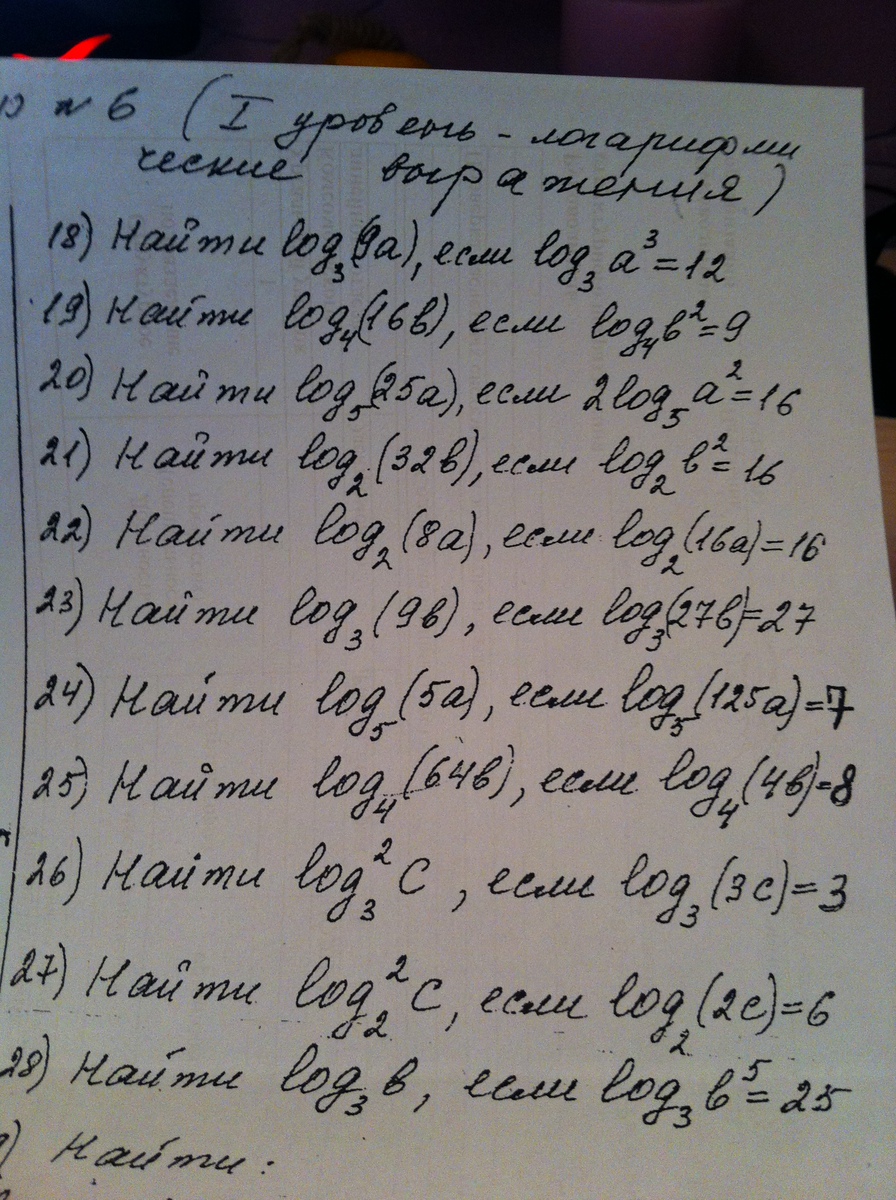 № 6 (I уровень - логарифми
ческие выражения)
18) Найти log₃(9a), если log₃ a³ = 12
19) Найти log₄(16в), если log₄ в² = 9
20) Найти log₅(25a), если 2log₅ a² = 16
21) Найти log₂(32в), если log₂ в² = 16
22) Найти log₂(8a), если log₂(16a) = 16
23) Найти log₃(9в), если log₃(27в) = 27
24) Найти log₅(5a), если log₅(125a) = 7
25) Найти log₄(64в), если log₄(4в) = 8
26) Найти log₃² C, если log₃(3c) = 3
27) Найти log₂² C, если log₂(2c) = 6
28) Найти log₃ в, если log₃ в⁵ = 25
) Найти: